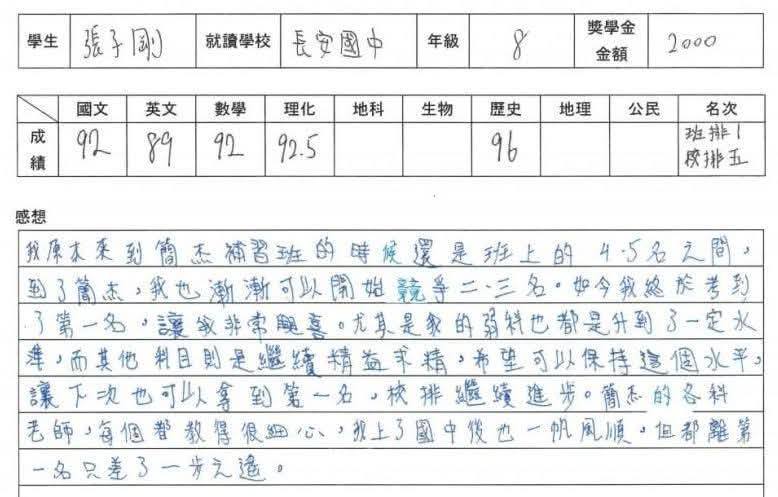 學生 張子剛 就讀學校 長安國中 年級 8 獎學金金額 2000
國文 英文 數學 理化 地科 生物 歷史 地理 公民 名次
成績 92 89 92 92.5 96 班排1 校排五
感想
我原本來到簡杰補習班的時候還是班上的4.5名之間,
到了簡杰,我也漸漸可以開始競爭二、三名。如今我終於考到
了第一名,讓我非常興喜。尤其是我的弱科也都是升到了一定水
準,而其他科目則是繼續精益求精,希望可以保持這個水平,
讓下次也可以拿到第一名,校排繼續進步。簡杰的各科
老師,每個都教得很細心,我上了國中後也一帆風順,但都離第
一名只差了一步之遙。